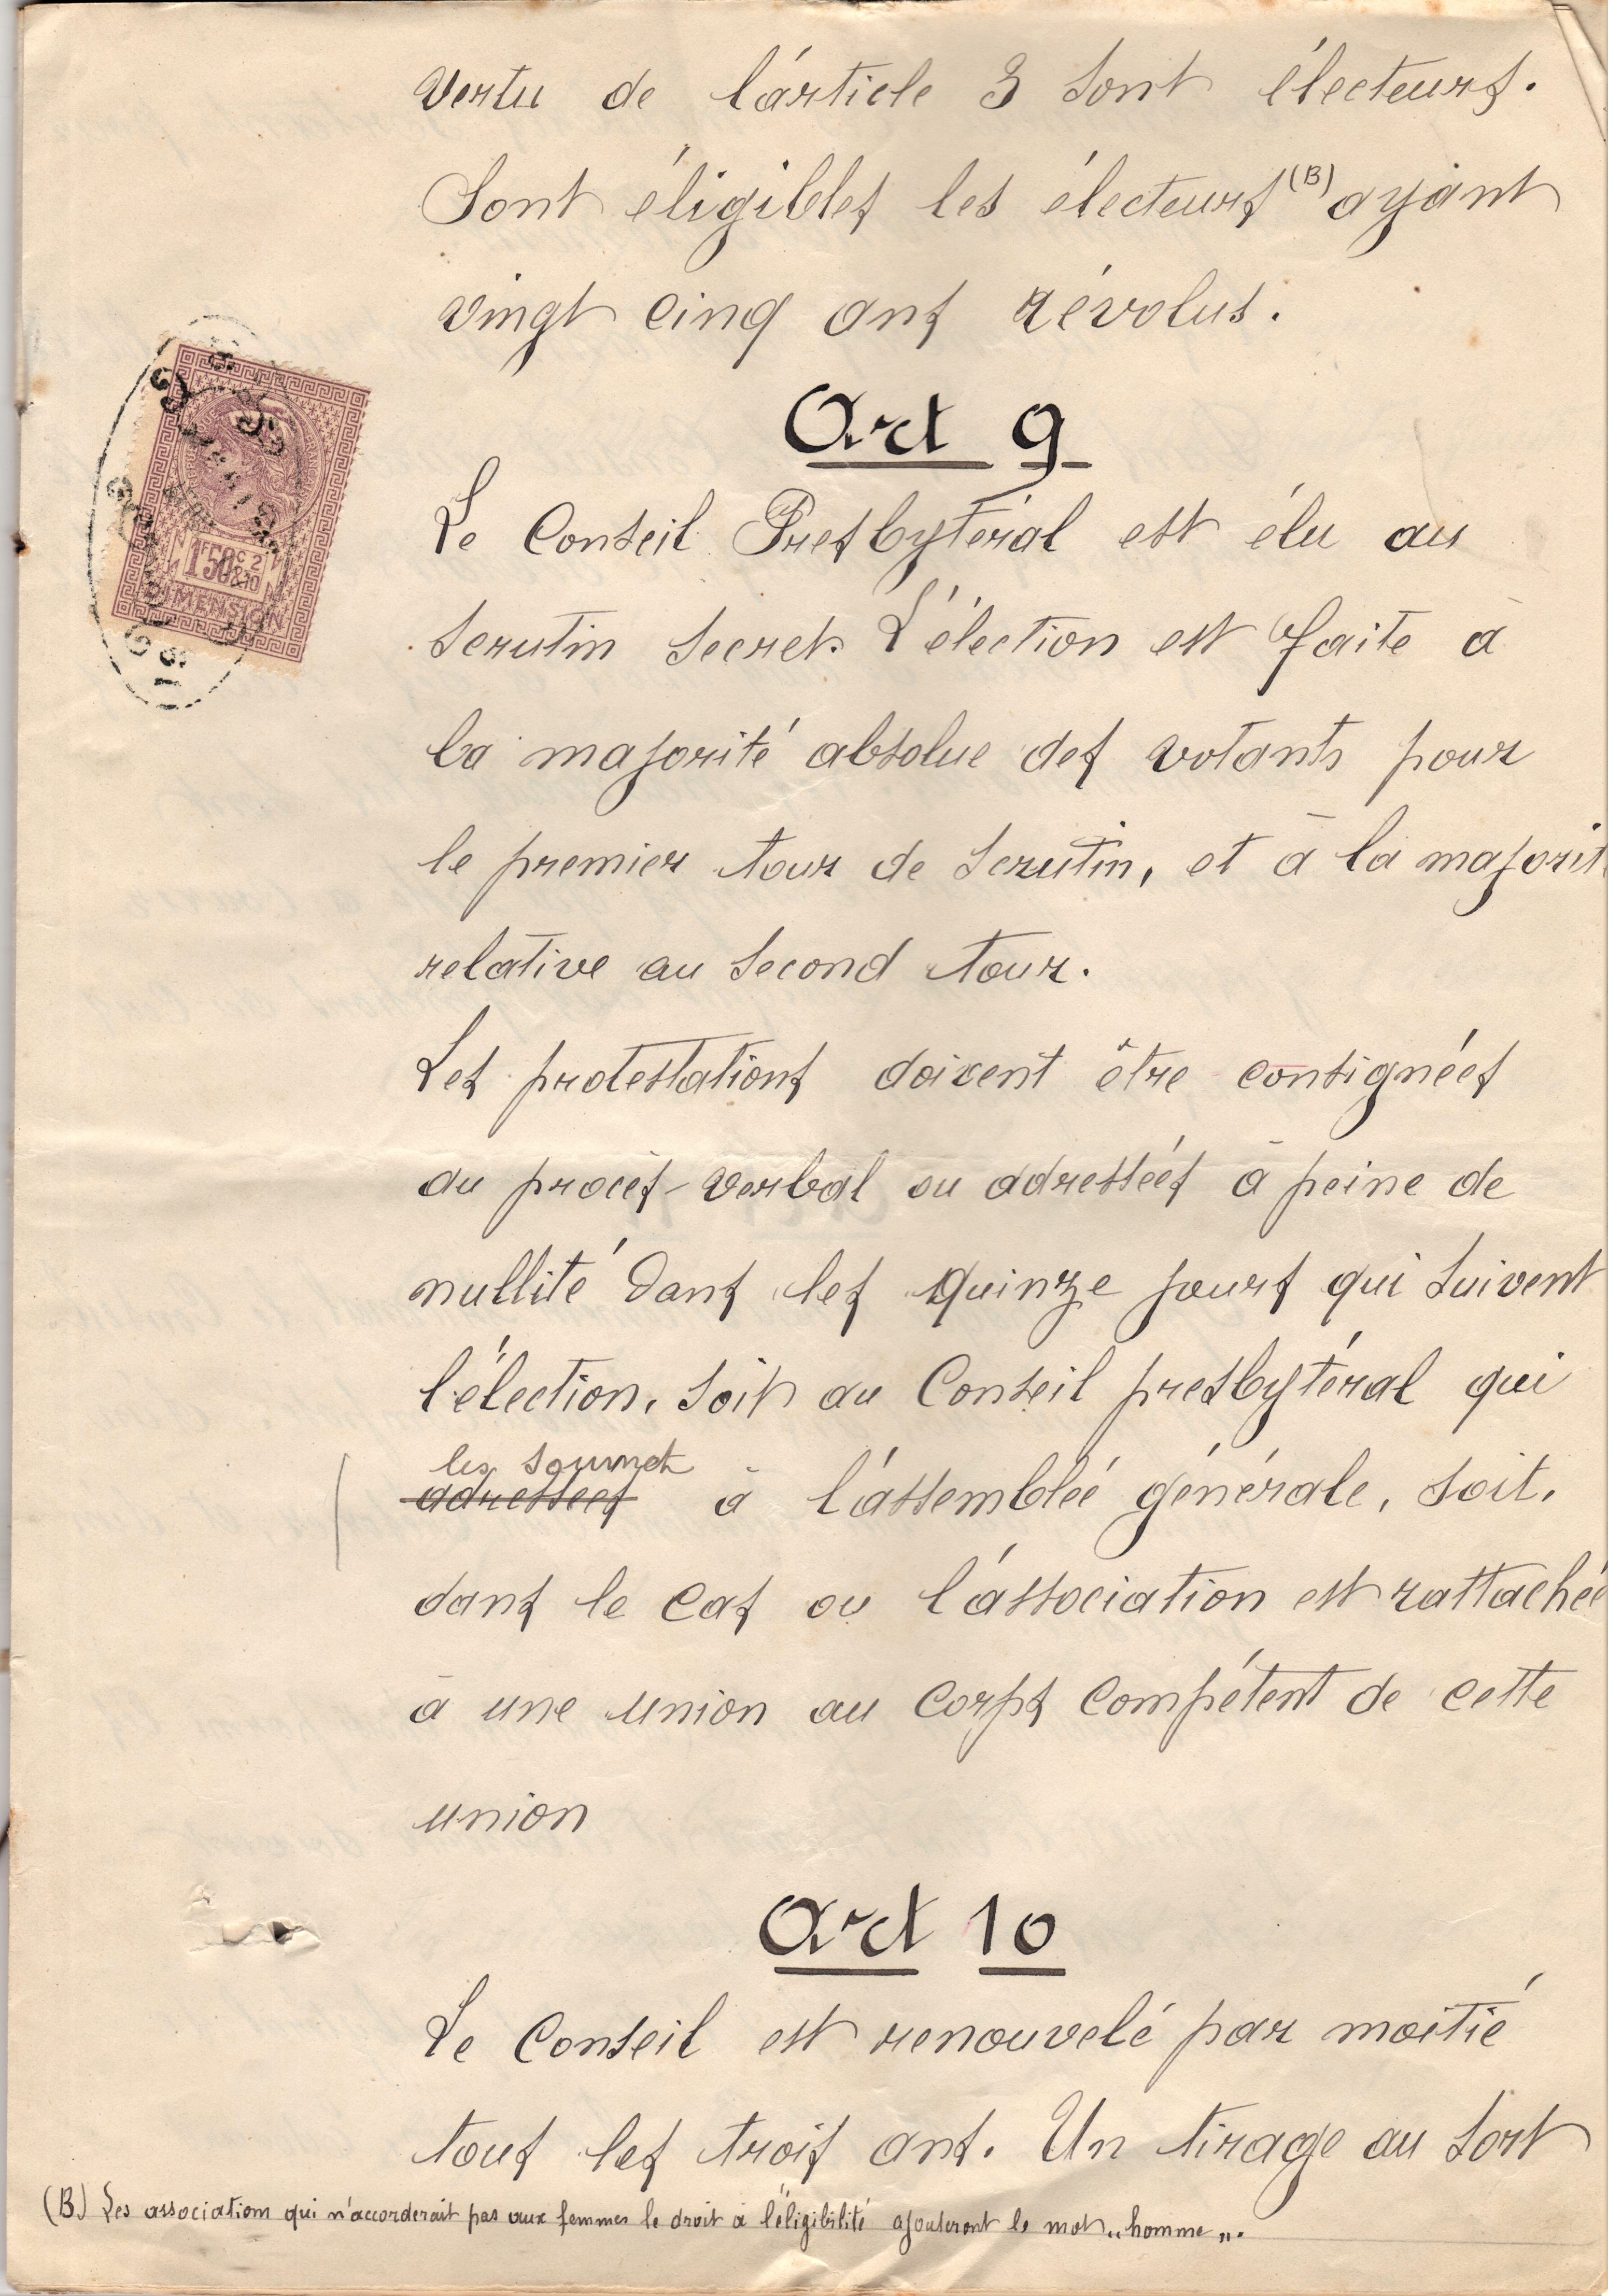 vertu de l'article 3 sont électeurs.
Sont éligibles les électeurs (B) ayant
vingt cinq ans révolus.
Art 9
Le Conseil Presbytéral est élu au
scrutin secret. L'élection est faite à
la majorité absolue des votants pour
le premier tour de scrutin, et à la majorit
relative au second tour.
Les protestations doivent être consignées
au procès-verbal ou adressées à peine de
nullité dans les quinze jours qui suivent
l'élection, soit au Conseil presbytéral qui
les soumet
adressées à l'assemblée générale, soit,
dans le cas ou l'association est rattachée
à une union au corps compétent de cette
union
Art 10
Le Conseil est renouvelé par moitié
tous les trois ans. Un tirage au sort
(B) Les associations qui n'accorderait pas aux femmes le droit à l'éligibilité ajouteront le mot „homme„.
1F50c 2 &10
DIMENSION